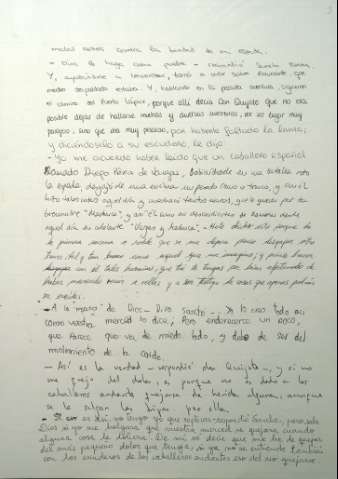 malas contra la bondad de mi espada.
- Dios lo haga como puede - respondió Sancho Panza.
Y, ayudándole a levantarse, tornó a subir sobre Rocinante, que
medio despaldado estaba. Y, hablando en la pasada aventura, siguieron
el camino del Puerto Lápice, porque allí decía Don Quijote que no era
posible dejar de hallarse muchas y diversas aventuras, por ser lugar muy
pasajero; sino que iba muy pesaroso, por haberle faltado la lanza;
y diciéndoselo a su escudero, le dijo:
- Yo me acuerdo haber leído que un caballero español
llamado Diego Pérez de Vargas, habiéndosele en una batalla roto
la espada, desgajó de una encina un pesado ramo o tronco, y con él
hizo tales cosas aquel día y machacó tantos moros, que le quedó por
sobrenombre "Machuca", y así él como sus descendientes se llaman desde
aquel día en adelante "Vargas y Machuca". Hete dicho esto porque de
la primera encina o roble que se me depare pienso desgajar otro
tronco, tal y tan bueno como aquel que me imagino, y pienso hacer
con él tales hazañas, que tú te tengas por bien afortunado de
haber merecido venir a vellas y a ser testigo de cosas que apenas podrán
ser creídas.
- A la mano de Dios - Dijo Sancho -. Yo lo creo todo así
como vuestra merced lo dice; Pero enderécese un poco,
que parece que va de medio lado, y debe de ser del
molimiento de la caída.
- Así es la verdad - respondió don Quijote -, y si no
me quejo del dolor, es porque no es dado a los
caballeros andantes quejarse de herida alguna, aunque
se le salgan las tripas por ella.
- Si eso es así, no tengo yo que replicar - respondió Sancho -, pero sabe
Dios si yo me holgara que vuestra merced se quejara cuando
alguna cosa le doliera. De mí sé decir que me he de quejar
del más pequeño dolor que tenga, si ya no se entiende también
con los escuderos de los caballeros andantes eso del no quejarse